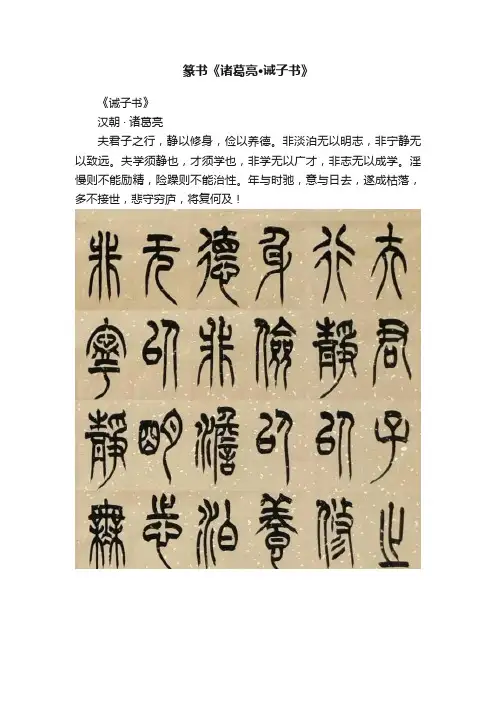 篆书《诸葛亮•诫子书》
《诫子书》
汉朝 · 诸葛亮
夫君子之行，静以修身，俭以养德。非淡泊无以明志，非宁静无
以致远。夫学须静也，才须学也，非学无以广才，非志无以成学。淫
慢则不能励精，险躁则不能治性。年与时驰，意与日去，遂成枯落，
多不接世，悲守穷庐，将复何及！
夫君子之
行靜以修
身儉以養
德非澹泊
无以明志
非寧靜無